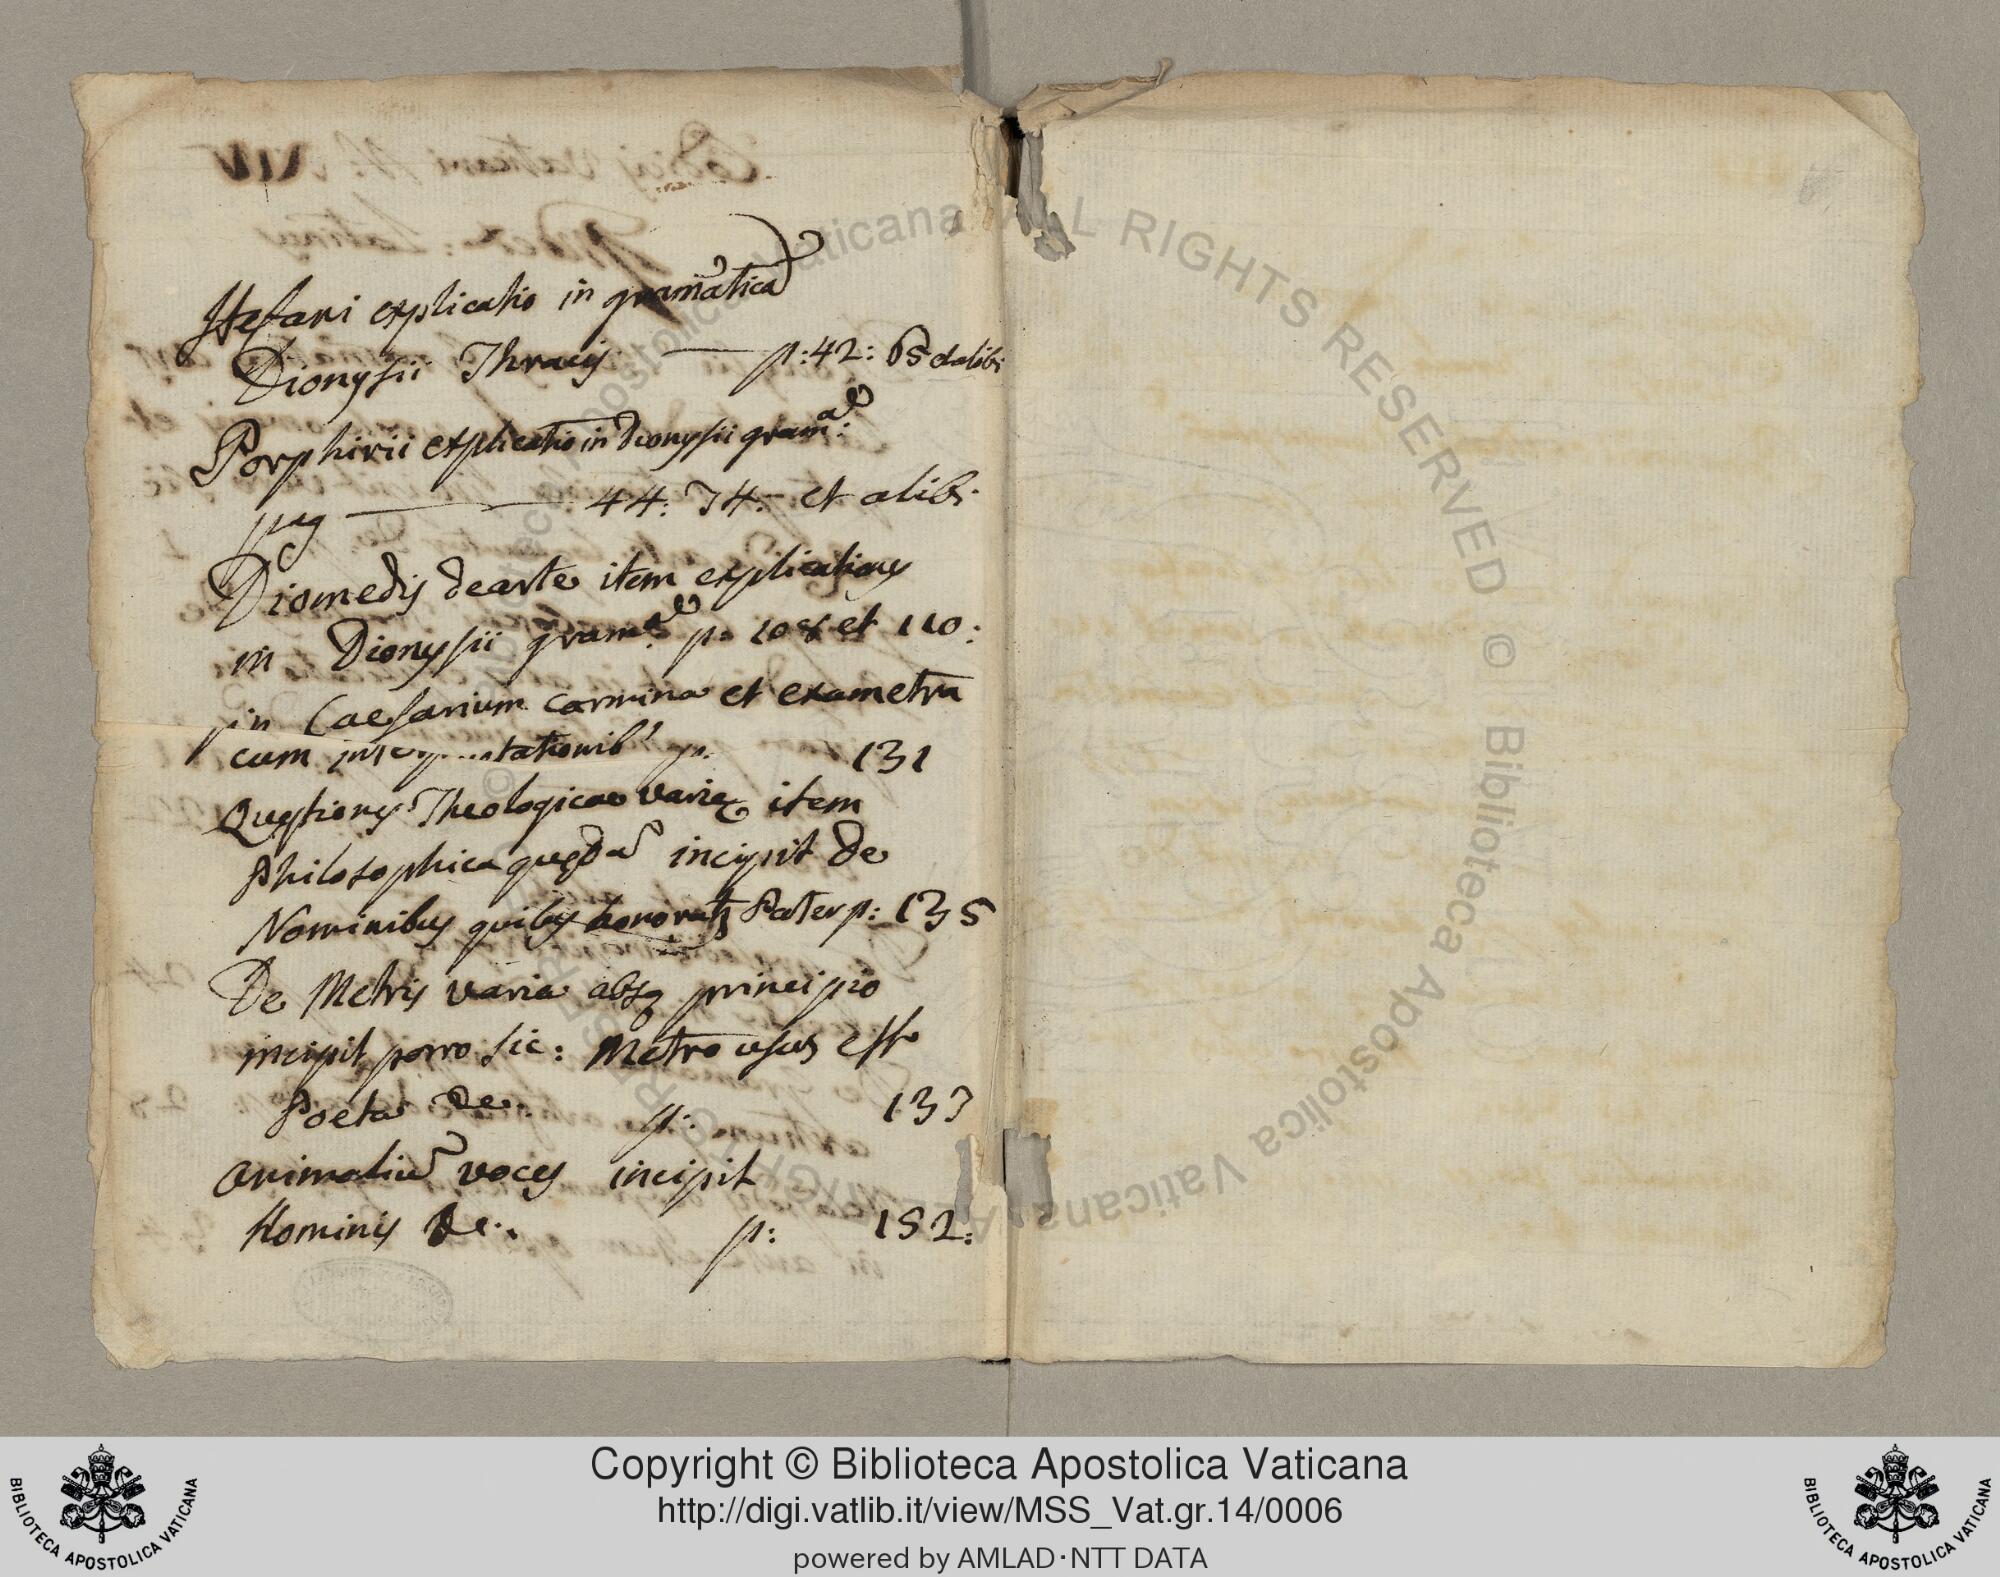 Stefani explicatio in gram̄aticā
Dionysii Thracis — p: 42: 65 et alibi
Porphirii explicatio in Dionysii gramᵃ:
pag — 44: 74: et alibi
Diomedis de arte item explicationes
in Dionysii gramᵃ: p: 108 et 110:
in Caesarium carmina et exametra
cum interpretationib' p: 131
Questiones Theologicae varię item
philosophica quędā incipit de
Nominibus quibus honorat Pater p: 135
De Metris varia absq principio
incipit porro sic: Metro usus est
Poeta de p: 133
animaliū voces incipit
Hominis de. p: 152:
Copyright © Biblioteca Apostolica Vaticana
http://digi.vatlib.it/view/MSS_Vat.gr.14/0006
powered by AMLAD·NTT DATA
BIBLIOTECA APOSTOLICA VATICANA
BIBLIOTECA APOSTOLICA VATICANA